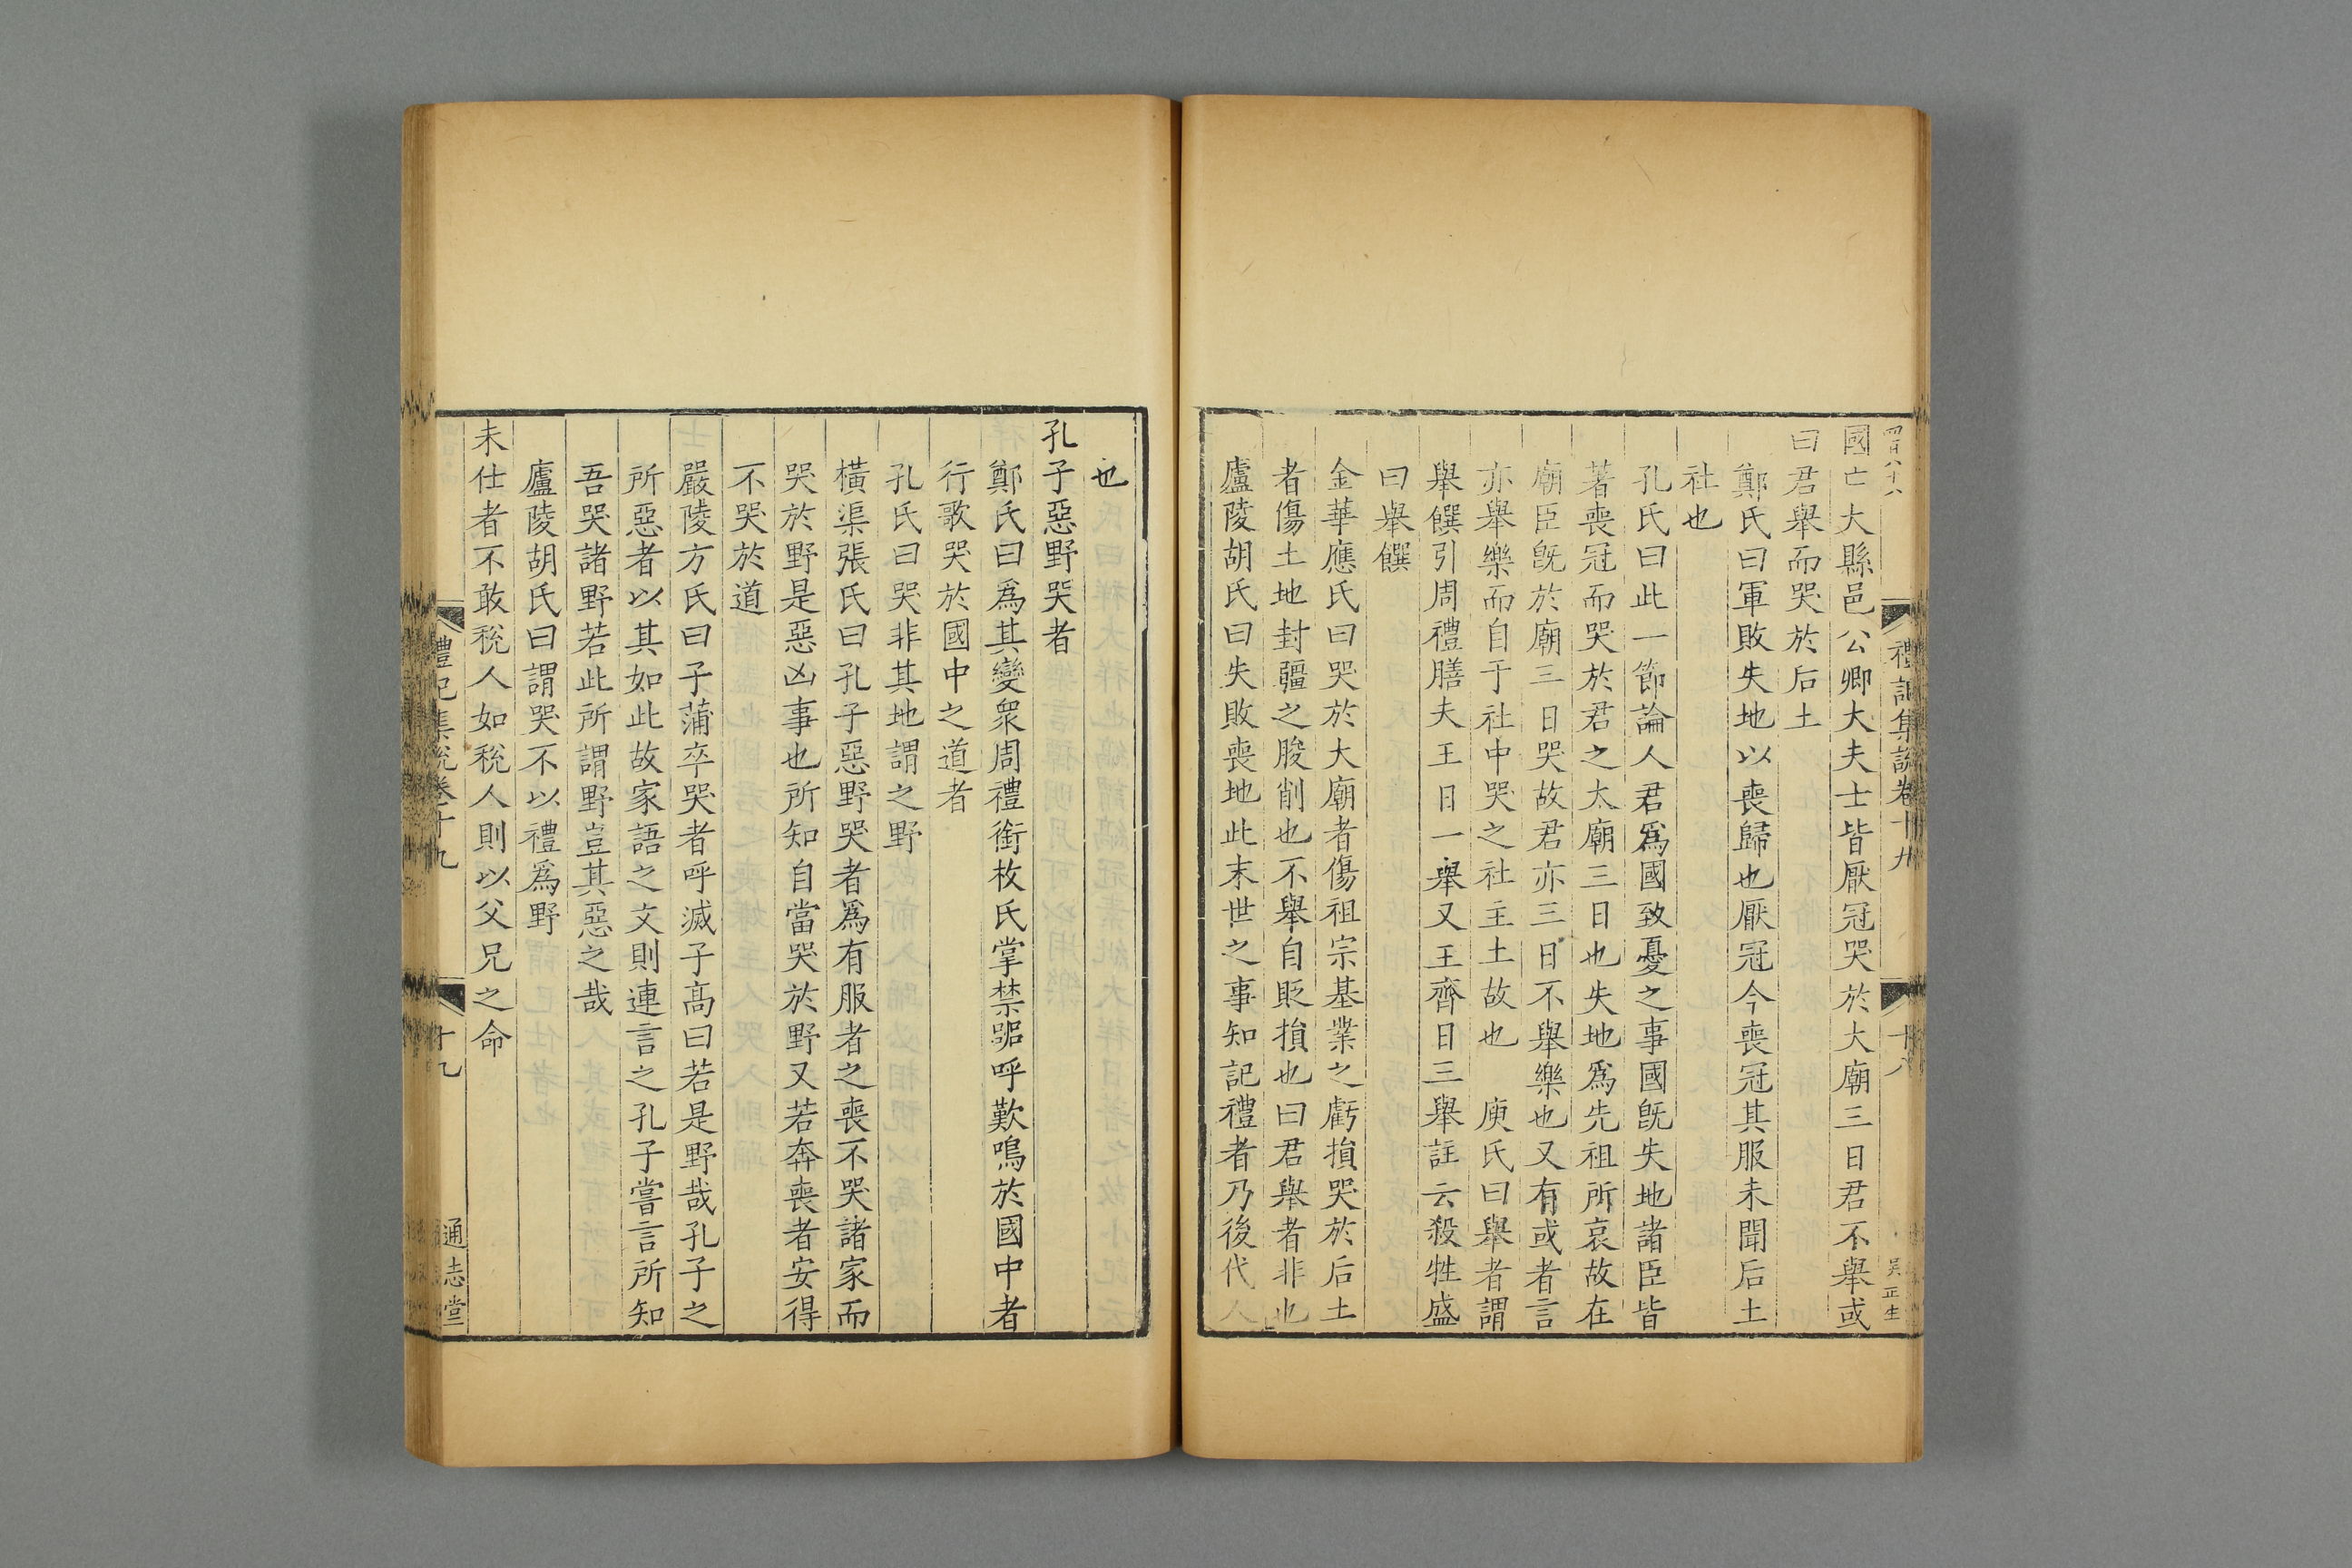 國亡大縣邑公卿大夫士皆厭冠哭於大廟三日君不舉或
曰君舉而哭於后土
鄭氏曰軍敗失地以喪歸也厭冠今喪冠其服未聞后土
社也
孔氏曰此一節論人君爲國致憂之事國旣失地諸臣皆
著喪冠而哭於君之太廟三日也失地爲先祖所哀故在
廟臣旣於廟三日哭故君亦三日不舉樂也又有或者言
亦舉樂而自于社中哭之社主土故也 庾氏曰舉者謂
舉饌引周禮膳夫王日一舉又王齊日三舉註云殺牲盛
曰舉饌
金華應氏曰哭於大廟者傷祖宗基業之虧損哭於后土
者傷土地封疆之朘削也不舉自貶損也曰君舉者非也
廬陵胡氏曰失敗喪地此末世之事知記禮者乃後代人
禮記集說卷十九
十八
吳正生
也
孔子惡野哭者
鄭氏曰爲其變衆周禮銜枚氏掌禁嘂呼歎鳴於國中者
行歌哭於國中之道者
孔氏曰哭非其地謂之野
橫渠張氏曰孔子惡野哭者爲有服者之喪不哭諸家而
哭於野是惡凶事也所知自當哭於野又若奔喪者安得
不哭於道
嚴陵方氏曰子蒲卒哭者呼滅子髙曰若是野哉孔子之
所惡者以其如此故家語之文則連言之孔子嘗言所知
吾哭諸野若此所謂野豈其惡之哉
廬陵胡氏曰謂哭不以禮爲野
未仕者不敢稅人如稅人則以父兄之命
禮記集說卷十九
十九
通志堂